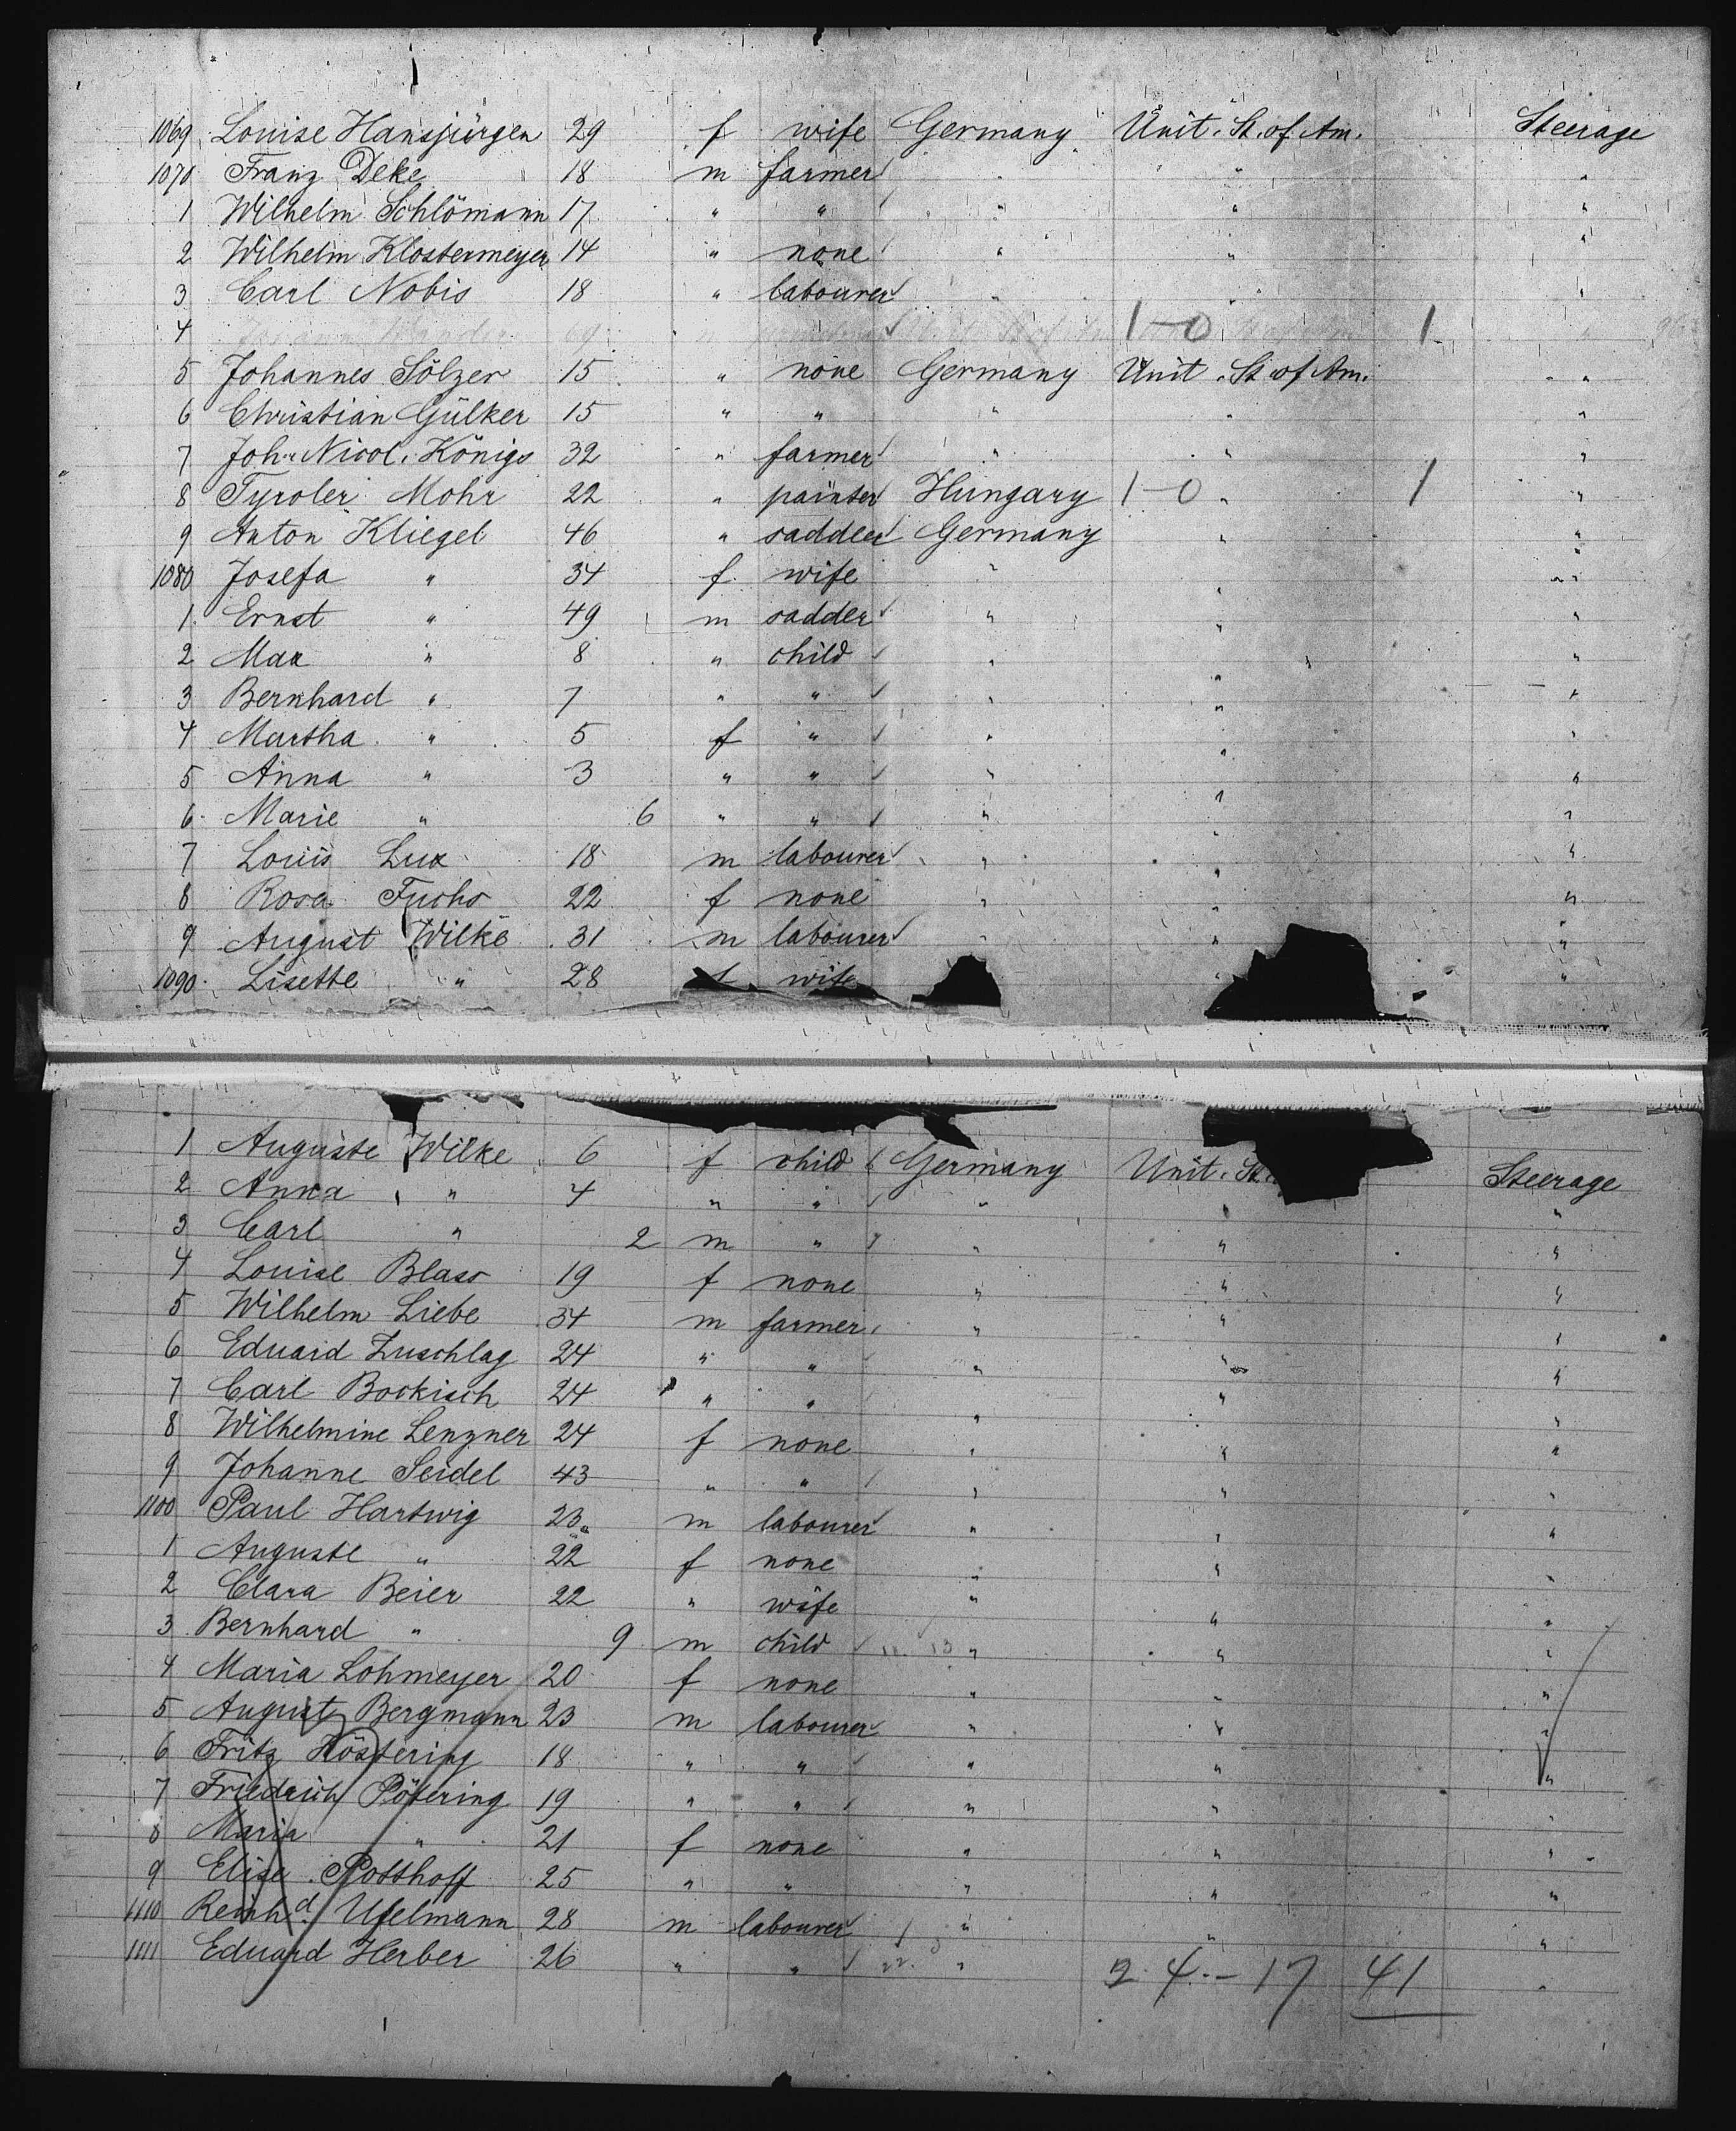 1069 Louise Hansjürgen 29 f wife Germany Unit. St. of Am. Steerage
1070 Franz Deke 18 m farmer " " "
1 Wilhelm Schlömann 17 " " " " "
2 Wilhelm Klostermeyer 14 " none " " "
3 Carl Nobis 18 " labourer " " "
4 69 1-0 1
5 Johannes Sölzer 15 " none Germany Unit. St. of Am. "
6 Christian Gülker 15 " " " " "
7 Joh. Nicol. Königs 32 " farmer " " "
8 Tyroler Mohr 22 " painter Hungary 1-0 " 1 "
9 Anton Kliegel 46 " saddler Germany " "
1080 Josefa " 34 f. wife " " "
1 Ernst " 49 m sadder " " "
2 Max " 8 " child " " "
3 Bernhard " 7 " " " " "
4 Martha " 5 f " " " "
5 Anna " 3 " " " " "
6 Marie " 6 " " " " "
7 Louis Lux 18 m labourer " " "
8 Rosa Fuchs 22 f none " " "
9 August Wilke 31 m labourer " " "
1090 Lisette " 28 f wife " "
1 Auguste Wilke 6 f child Germany Unit. St. Steerage
2 Anna " 4 " " " " "
3 Carl " 2 m " " " "
4 Louise Blass 19 f none " " "
5 Wilhelm Liebe 34 m farmer " " "
6 Eduard Zuschlag 24 " " " " "
7 Carl Bockisch 24 " " " " "
8 Wilhelmine Lenzner 24 f none " " "
9 Johanne Seidel 43 " " " " "
1100 Paul Hartwig 23 m labourer " " "
1 Auguste " 22 f none " " "
2 Clara Beier 22 " wife " " "
3 Bernhard " 9 m child " " "
4 Maria Lohmeyer 20 f none " " "
5 August Bergmann 23 m labourer " " "
6 Fritz Höstering 18 " " " " "
7 Friedrich Pötering 19 " " " " "
8 Maria " 21 f none " " "
9 Elise Potthoff 25 " " " " "
1110 Reinhd. Ufelmann 28 m labourer " " "
1111 Eduard Herber 26 " " " 2 4 - 17 41 "